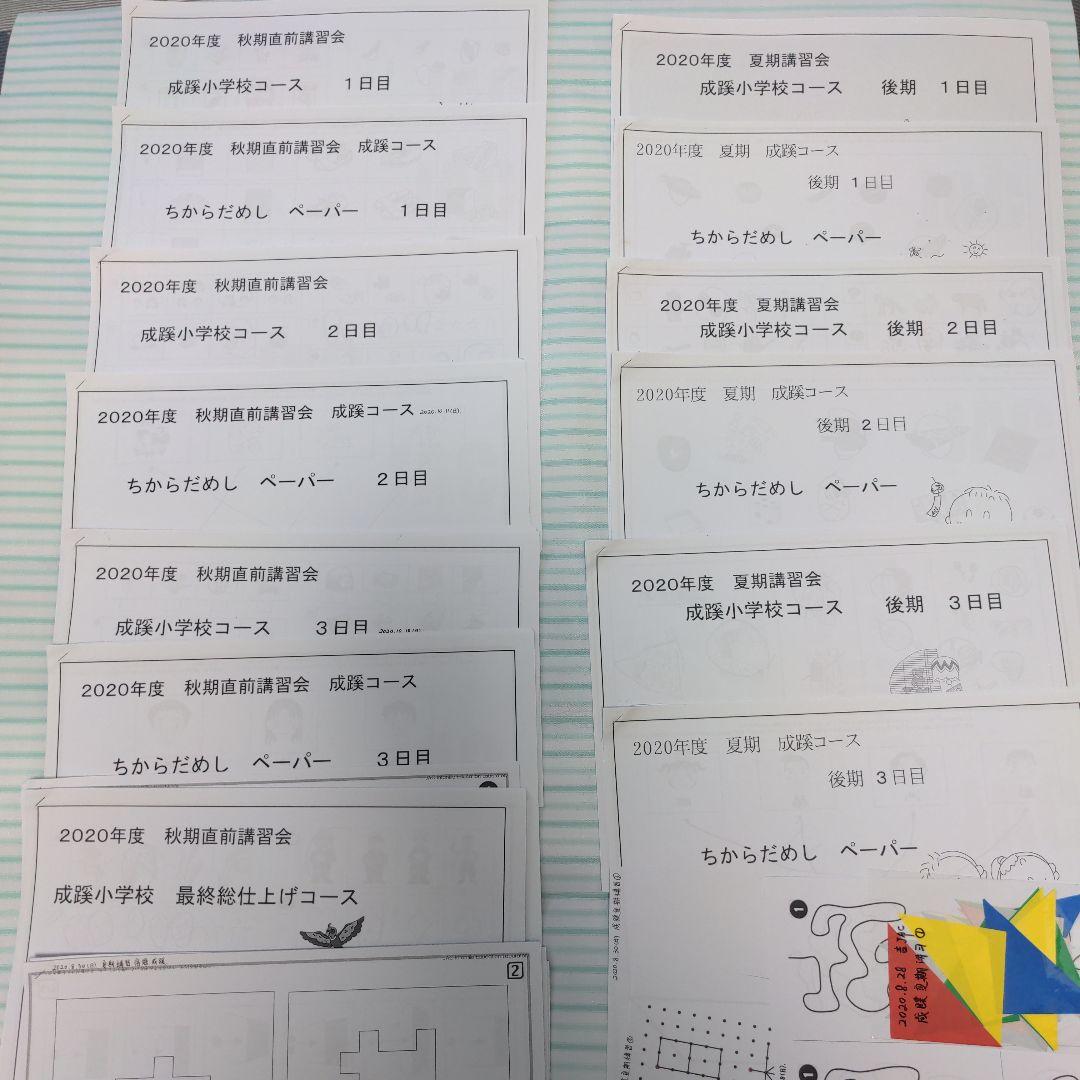 2020年度 秋期直前講習会
成蹊小学校コース 1日目
2020年度 秋期直前講習会 成蹊コース
ちからだめし ペーパー 1日目
2020年度 秋期直前講習会
成蹊小学校コース 2日目
2020年度 秋期直前講習会 成蹊コース 2020.10.11(日)
ちからだめし ペーパー 2日目
2020年度 秋期直前講習会
成蹊小学校コース 3日目
2020年度 秋期直前講習会 成蹊コース
ちからだめし ペーパー 3日目
2020年度 秋期直前講習会
成蹊小学校 最終総仕上げコース
2
2020年度 夏期講習会
成蹊小学校コース 後期 1日目
2020年度 夏期 成蹊コース
後期 1日目
ちからだめし ペーパー
2020年度 夏期講習会
成蹊小学校コース 後期 2日目
2020年度 夏期 成蹊コース
後期 2日目
ちからだめし ペーパー
2020年度 夏期講習会
成蹊小学校コース 後期 3日目
2020年度 夏期 成蹊コース
後期 3日目
ちからだめし ペーパー
1
2020.8.28
1